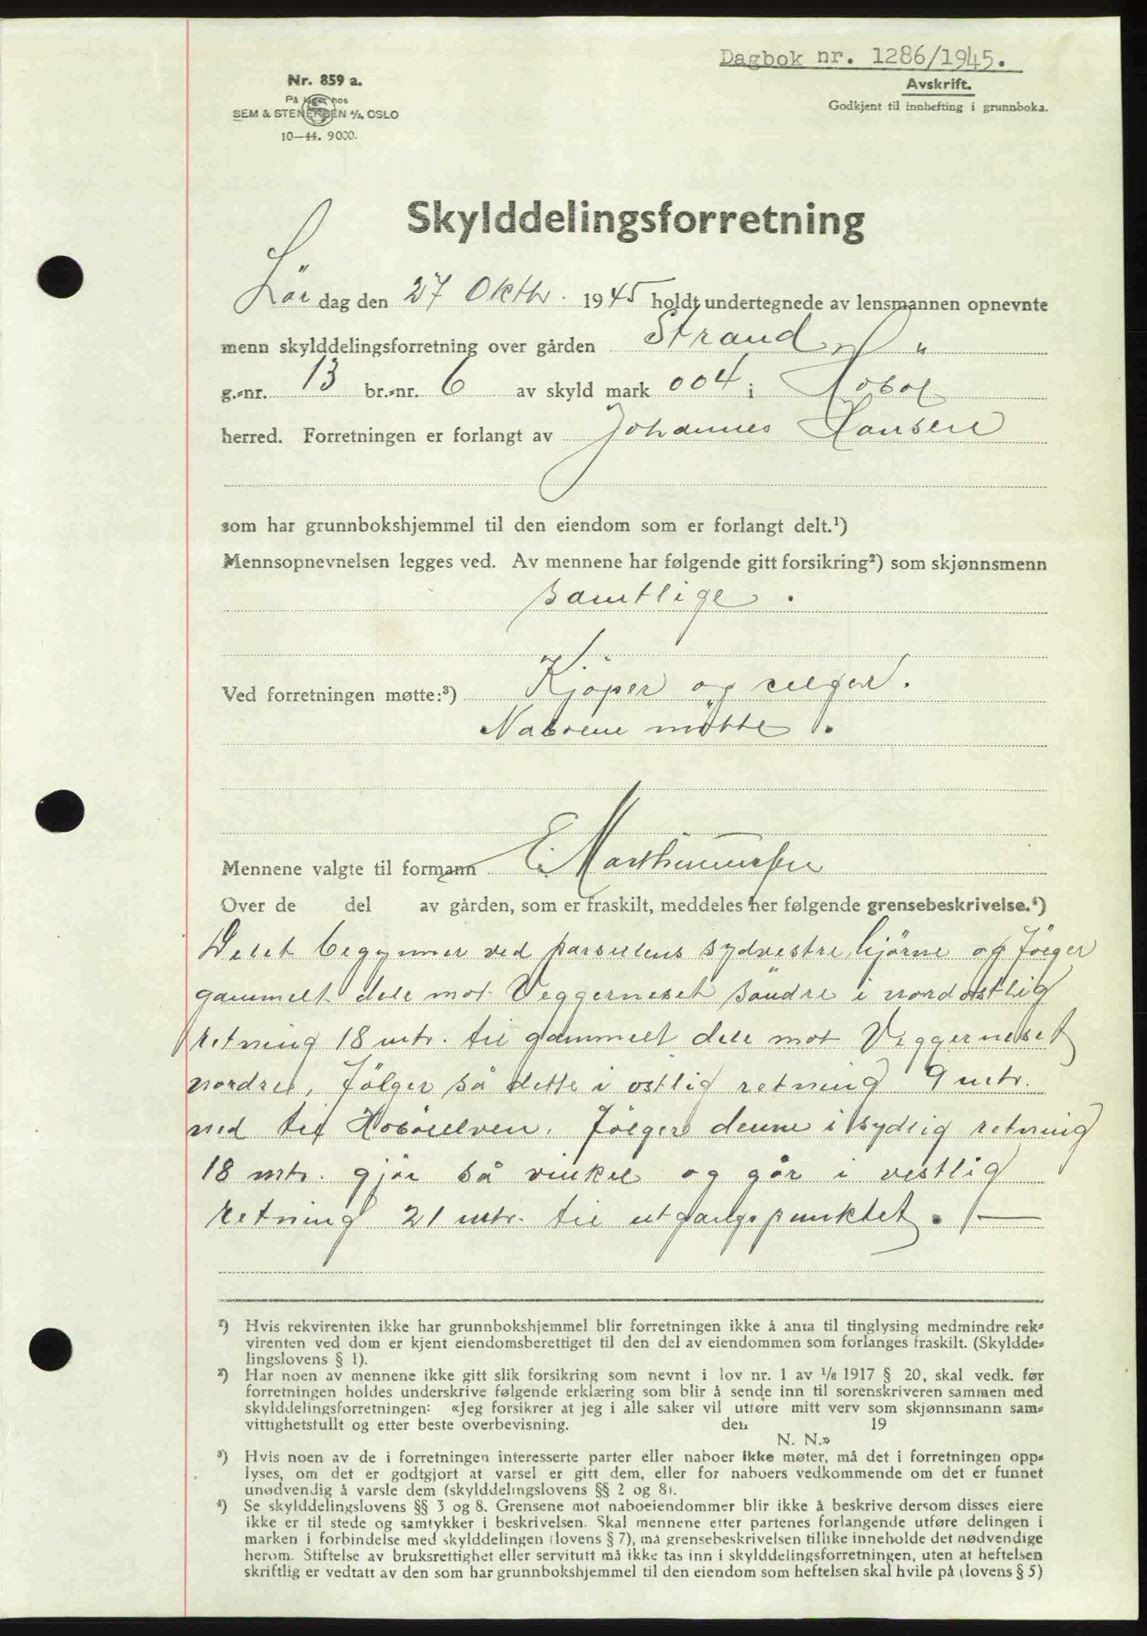 Dagbok nr. 1286/1945.
Avskrift.
Godkjent til innhefting i grunnboka.
Nr. 859 a.
På lager hos
SEM & STENERSEN A/S, OSLO
10—44. 9000.
Skylddelingsforretning
Lör dag den 27 Oktbr. 1945 holdt undertegnede av lensmannen opnevnte
menn skylddelingsforretning over gården Strand "
g.-nr. 13 br.-nr. 6 av skyld mark 004 i Hobøl
herred. Forretningen er forlangt av Johannes Hansen
som har grunnbokshjemmel til den eiendom som er forlangt delt.¹)
Mennsopnevnelsen legges ved. Av mennene har følgende gitt forsikring²) som skjønnsmenn
samtlige.
Ved forretningen møtte:³) Kjöper og selger.
Naboene mötte.
Mennene valgte til formann E. Marthinussen
Over de del av gården, som er fraskilt, meddeles her følgende grensebeskrivelse.⁴)
Delet begynner ved parsellens sydvestre hjörne og fölger
gammelt dele mot Veggerneset söndre i nordostlig
retning 18 mtr. til gammelt dele mot Veggerneset
nordre, fölger så dette i ostlig retning 9 mtr.
ned til Hobölelven. Fölger denne i sydlig retning
18 mtr. gjör så vinkel og går i vestlig
retning 21 mtr. til utgangspunktet. —
¹) Hvis rekvirenten ikke har grunnbokshjemmel blir forretningen ikke å anta til tinglysing medmindre rek-
virenten ved dom er kjent eiendomsberettiget til den del av eiendommen som forlanges fraskilt. (Skyldde-
lingslovens § 1).
²) Har noen av mennene ikke gitt slik forsikring som nevnt i lov nr. 1 av 1/6 1917 § 20, skal vedk. før
forretningen holdes underskrive følgende erklæring som blir å sende inn til sorenskriveren sammen med
skylddelingsforretningen: «Jeg forsikrer at jeg i alle saker vil utføre mitt verv som skjønnsmann sam-
vittighetsfullt og etter beste overbevisning. den 19
N. N.»
³) Hvis noen av de i forretningen interesserte parter eller naboer ikke møter, må det i forretningen opp-
lyses, om det er godtgjort at varsel er gitt dem, eller for naboers vedkommende om det er funnet
unødvendig å varsle dem (skylddelingslovens §§ 2 og 8).
⁴) Se skylddelingslovens §§ 3 og 8. Grensene mot naboeiendommer blir ikke å beskrive dersom disses eiere
ikke er til stede og samtykker i beskrivelsen. Skal mennene etter partenes forlangende utføre delingen i
marken i forbindelse med skylddelingen (lovens § 7), må grensebeskrivelsen tillike inneholde det nødvendige
herom. Stiftelse av bruksrettighet eller servitutt må ikke tas inn i skylddelingsforretningen, uten at heftelsen
skriftlig er vedtatt av den som har grunnbokshjemmel til den eiendom som heftelsen skal hvile på (lovens § 5)